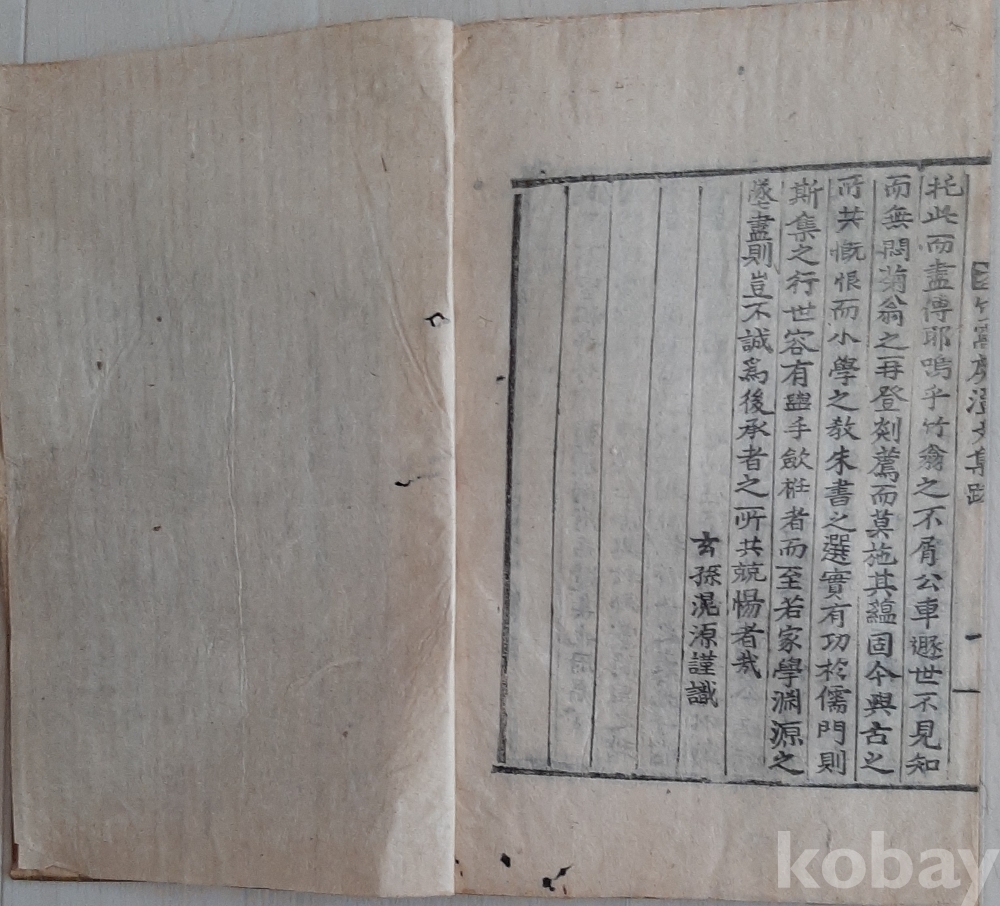 托此而盡傳耶嗚乎竹翁之不屑公車遯世不見知
而無悶菊翁之再登剡薦而莫施其蘊固今與古之
所共慨恨而小學之敎朱書之選實有功於儒門則
斯集之行世容有盥手斂袵者而至若家學淵源之
墜盡則豈不誠爲後承者之所共兢惕者哉
玄孫滉源謹識
文集跋
一
kobay